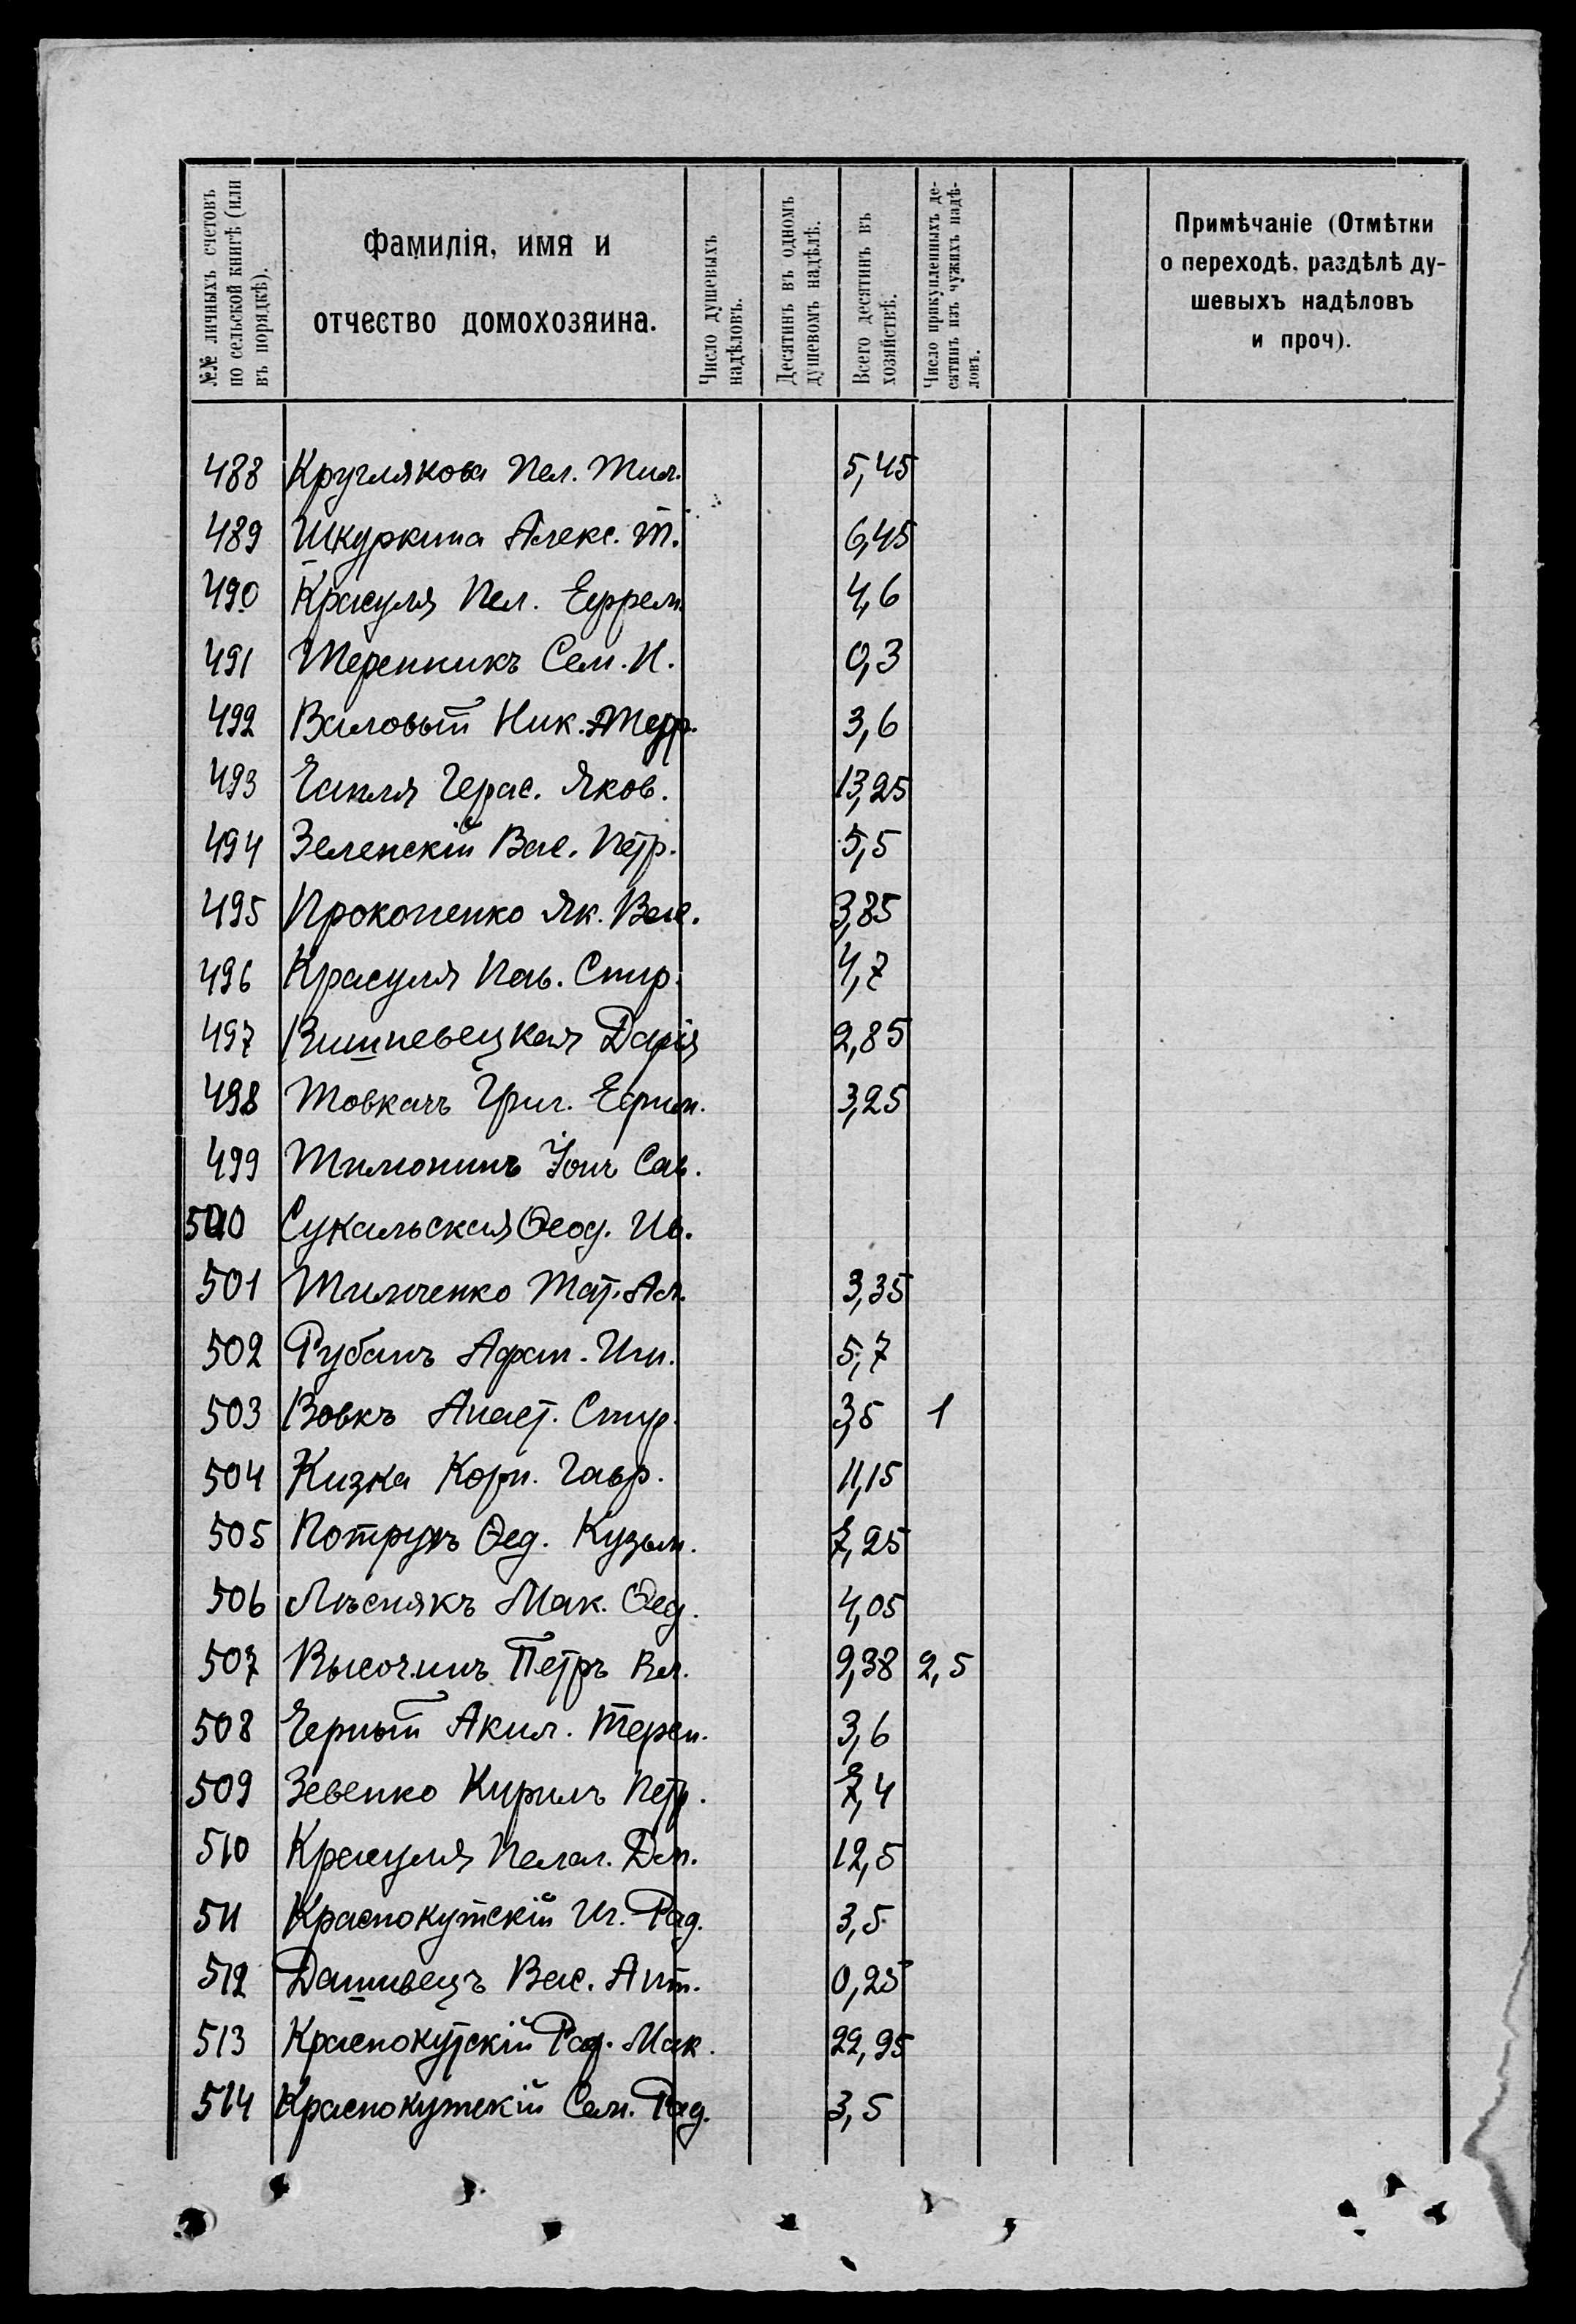 №№ личныхъ счетовъ
по сельской книгѣ (или
въ порядкѣ).
Фамилія, имя и
отчество домохозяина.
Число душевыхъ
надѣловъ.
Десятинъ въ одномъ
душевомъ надѣлѣ.
Всего десятинъ въ
хозяйствѣ.
Число прикупленныхъ де-
сятинъ изъ чужихъ надѣ-
ловъ.
Примѣчаніе (Отмѣтки
о переходѣ, раздѣлѣ ду-
шевыхъ надѣловъ
и проч).
488 Круглякова Пел. 5,45
489 Шкуркина Алекс. Т. 6,45
490 Красуля Пел. Ефрем. 4,6
491 Теренникъ Сем. И. 0,3
492 Валовый Ник. 3,6
493 Чапля Герас. Яков. 13,25
494 Зеленскій Вас. Петр. 5,5
495 Прокопенко Як. Вас. 3,85
496 Красуля Пав. Спир. 4,7
497 Вишневецкая Дарія 2,85
498 Товкачъ Григ. Ефим. 3,25
499 Тимонинъ Сав.
500 Сукальская Ѳеод. Ив.
501 Тимченко 3,35
502 Рубанъ Афан. 5,7
503 Вовкъ Анаст. Спир. 3,5 1
504 Кизка Корн. Гавр. 11,15
505 Ѳед. Кузьм. 7,25
506 Лѣснякъ Мак. Ѳед. 4,05
507 Высочинъ Петръ 9,38 2,5
508 Черный Акил. Терен. 3,6
509 Зевенко Кирилъ Петр. 7,4
510 Красуля Пелаг. Дем. 12,5
511 Краснокутскій Иг. Рад. 3,5
512 Дашивецъ Вас. Ант. 0,25
513 Краснокутскій Рад. Мак. 22,95
514 Краснокутскій Сем. Рад. 3,5